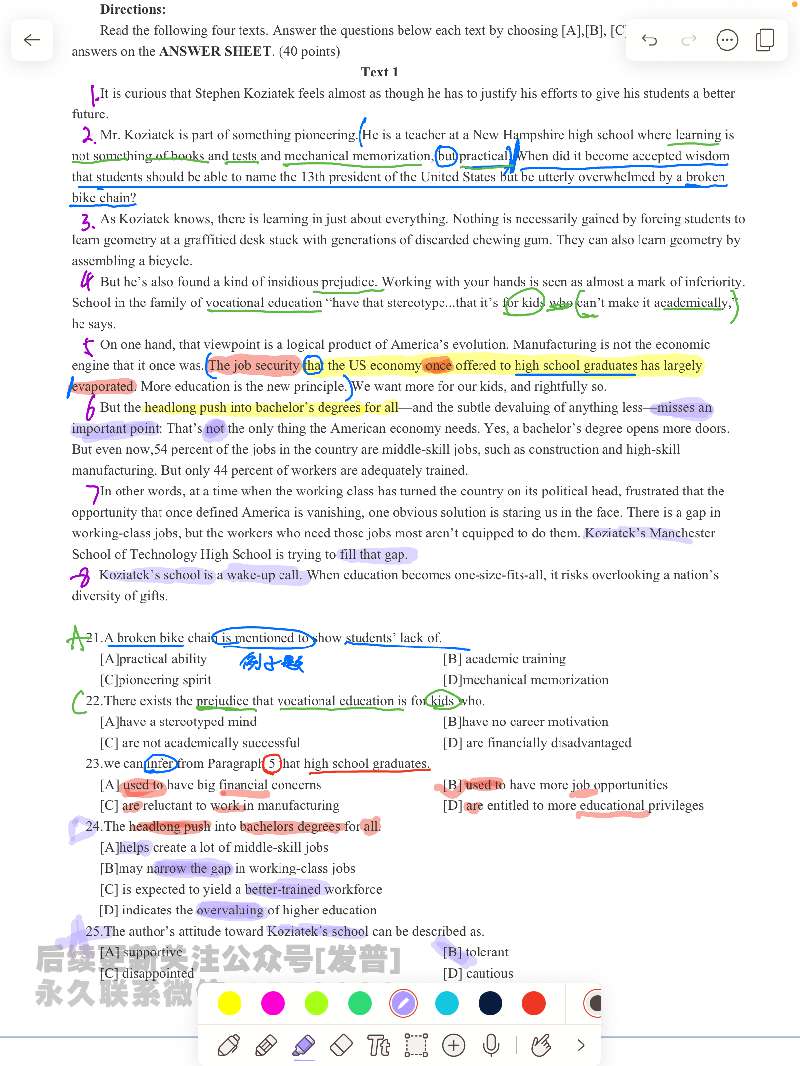 Directions:
Read the following four texts. Answer the questions below each text by choosing [A],[B], [C]
answers on the ANSWER SHEET. (40 points)
Text 1
1. It is curious that Stephen Koziatek feels almost as though he has to justify his efforts to give his students a better
future.
2. Mr. Koziatek is part of something pioneering. He is a teacher at a New Hampshire high school where learning is
not something of books and tests and mechanical memorization, but practical. When did it become accepted wisdom
that students should be able to name the 13th president of the United States but be utterly overwhelmed by a broken
bike chain?
3. As Koziatek knows, there is learning in just about everything. Nothing is necessarily gained by forcing students to
learn geometry at a graffitied desk stuck with generations of discarded chewing gum. They can also learn geometry by
assembling a bicycle.
4 But he's also found a kind of insidious prejudice. Working with your hands is seen as almost a mark of inferiority.
School in the family of vocational education “have that stereotype...that it's for kids who can't make it academically,”
he says.
5 On one hand, that viewpoint is a logical product of America's evolution. Manufacturing is not the economic
engine that it once was. The job security that the US economy once offered to high school graduates has largely
evaporated. More education is the new principle. We want more for our kids, and rightfully so.
6 But the headlong push into bachelor's degrees for all—and the subtle devaluing of anything less—misses an
important point: That's not the only thing the American economy needs. Yes, a bachelor's degree opens more doors.
But even now,54 percent of the jobs in the country are middle-skill jobs, such as construction and high-skill
manufacturing. But only 44 percent of workers are adequately trained.
7 In other words, at a time when the working class has turned the country on its political head, frustrated that the
opportunity that once defined America is vanishing, one obvious solution is staring us in the face. There is a gap in
working-class jobs, but the workers who need those jobs most aren't equipped to do them. Koziatek's Manchester
School of Technology High School is trying to fill that gap.
8 Koziatek's school is a wake-up call. When education becomes one-size-fits-all, it risks overlooking a nation's
diversity of gifts.
A 21.A broken bike chain is mentioned to show students' lack of.
[A]practical ability [B] academic training
例子题
[C]pioneering spirit [D]mechanical memorization
C 22.There exists the prejudice that vocational education is for kids who.
[A]have a stereotyped mind [B]have no career motivation
[C] are not academically successful [D] are financially disadvantaged
23.we can infer from Paragraph 5 that high school graduates.
[A] used to have big financial concerns [B] used to have more job opportunities
[C] are reluctant to work in manufacturing [D] are entitled to more educational privileges
D 24.The headlong push into bachelors degrees for all.
[A]helps create a lot of middle-skill jobs
[B]may narrow the gap in working-class jobs
[C] is expected to yield a better-trained workforce
[D] indicates the overvaluing of higher education
A 25.The author's attitude toward Koziatek's school can be described as.
[A] supportive [B] tolerant
后续更新关注公众号[发普]
[C] disappointed [D] cautious
永久联系微
Tt